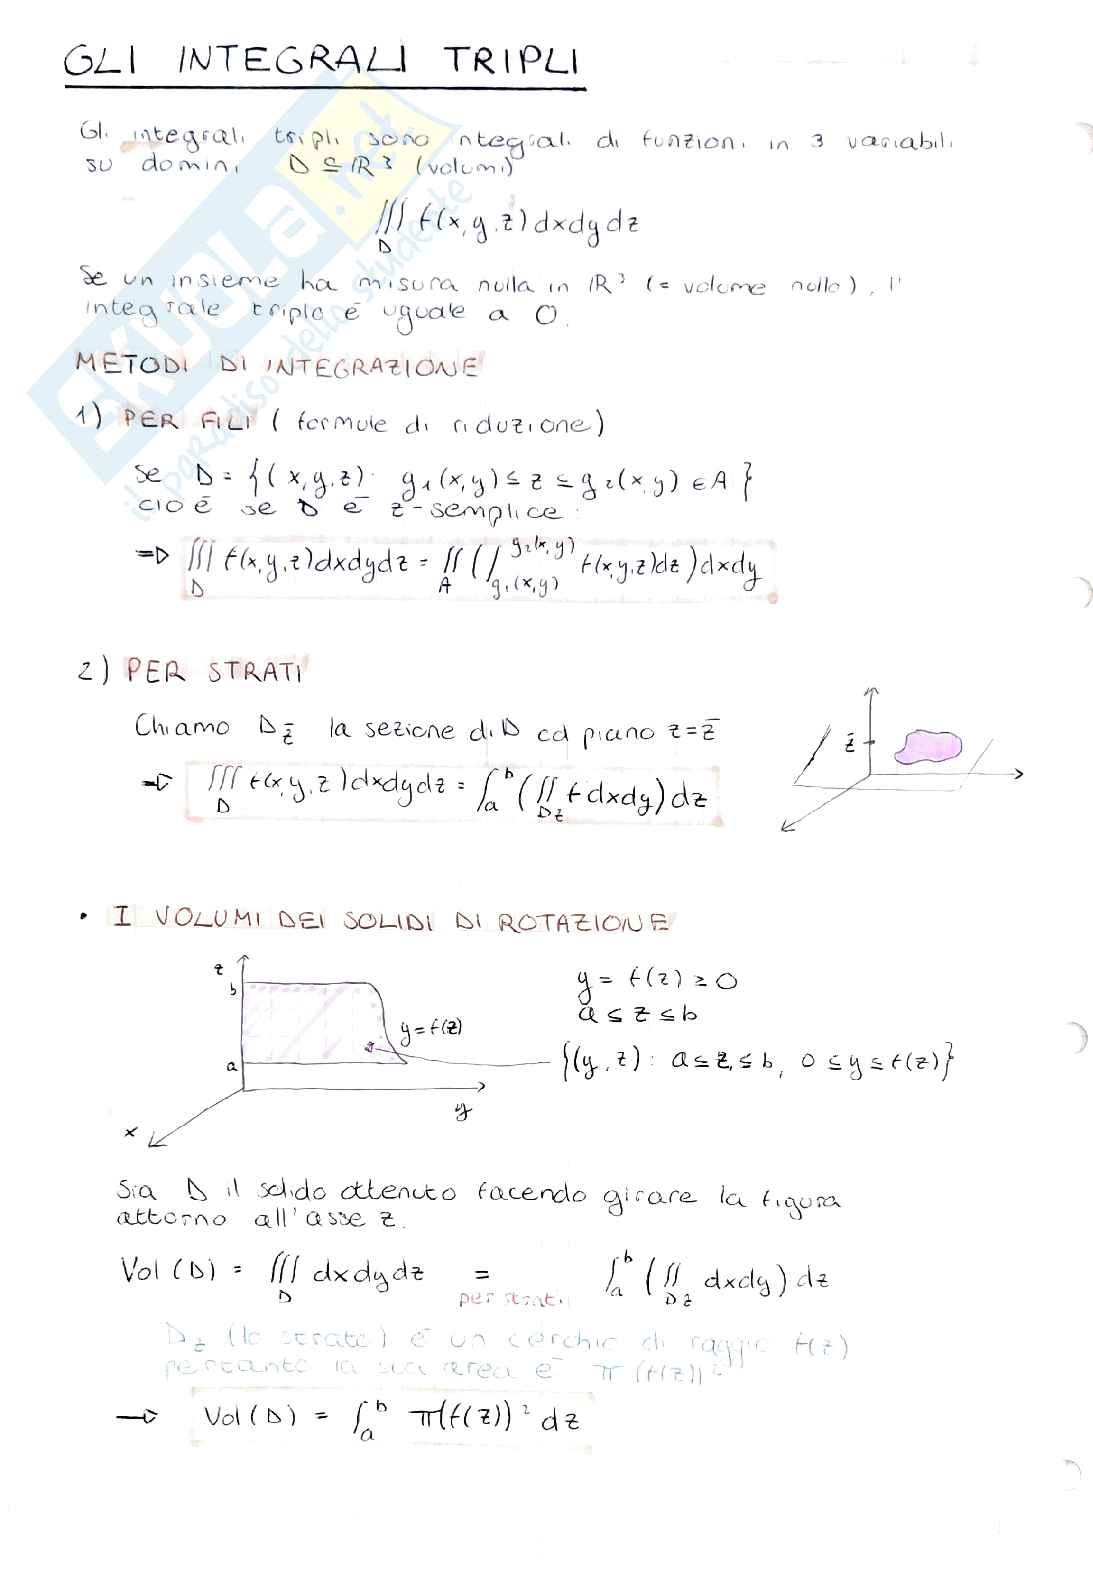 GLI INTEGRALI TRIPLI
Gli integrali tripli sono integrali di funzioni in 3 variabili
su domini D ⊆ ℝ³ (volumi)
∭_D f(x,y,z)dxdydz
Se un insieme ha misura nulla in ℝ³ (= volume nullo), l'
integrale triplo è uguale a 0.
METODI DI INTEGRAZIONE
1) PER FILI (formule di riduzione)
se D = {(x,y,z): g₁(x,y) ≤ z ≤ g₂(x,y) ∈ A}
cioè se D è z-semplice:
⇒ ∭_D f(x,y,z)dxdydz = ∬_A (∫_{g₁(x,y)}^{g₂(x,y)} f(x,y,z)dz)dxdy
2) PER STRATI
Chiamo D_z̄ la sezione di D col piano z=z̄
z̄
⇒ ∭_D f(x,y,z)dxdydz = ∫_a^b (∬_{D_z} f dxdy)dz
• I VOLUMI DEI SOLIDI DI ROTAZIONE
z
b
a
y=f(z)
y
x
y = f(z) ≥ 0
a ≤ z ≤ b
{(y,z): a≤z≤b, 0≤y≤f(z)}
Sia D il solido ottenuto facendo girare la figura
attorno all'asse z.
Vol(D) = ∭_D dxdydz = ∫_a^b (∬_{D_z} dxdy)dz
per strati
D_z (lo strato) è un cerchio di raggio f(z)
pertanto la sua area è π(f(z))²
→ Vol(D) = ∫_a^b π(f(z))² dz
SKUOLA.net
il paradiso dello studente